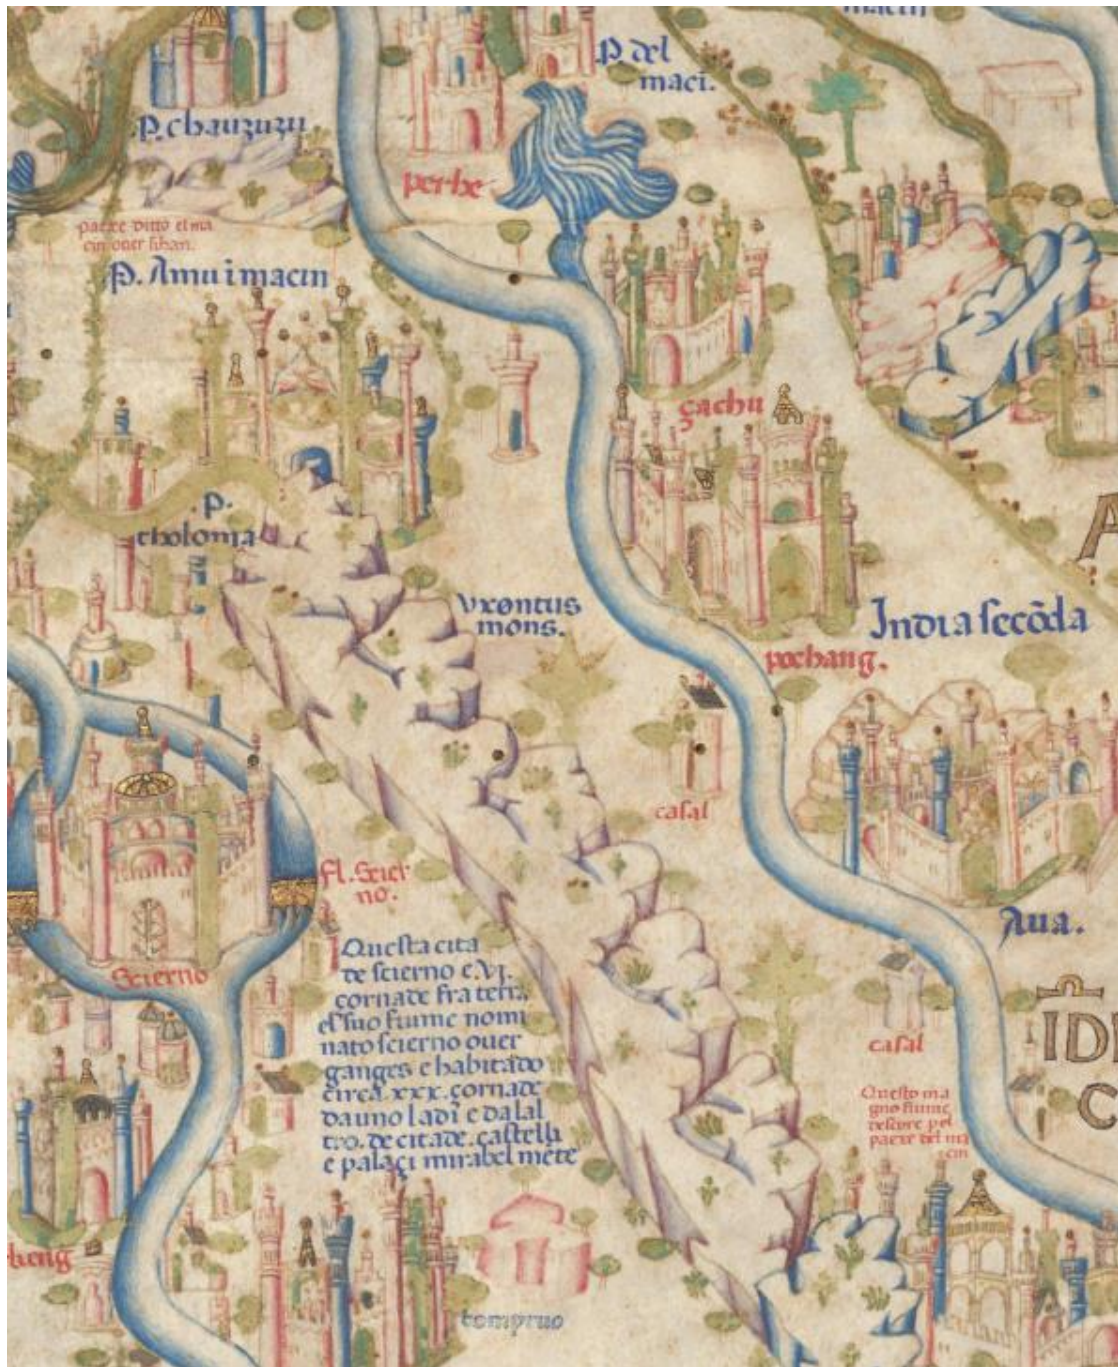 macin
P. del
maci.
P. chauzuzu
perhe
paexe ditto el ma
cin ouer sihan.
P. Amu i macin
çachu
.P.
tholoma
Vxontus
mons.
India secõda
pochang.
casal
fl. Scier
no.
Scierno
Aua.
Questa cita
de scierno e .vi.
çornade fra terra
el suo fiume nomi
nato scierno ouer
ganges e habitado
circa .xxx. çornade
da uno ladi e da lal
tro. de citade. castelli
e palaçi mirabel mẽte
casal
IDI
C
Questo ma
gno fiume
descore pel
paexe del ma
cin
A